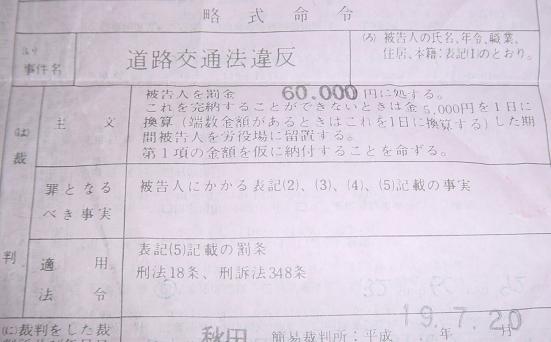 略式命令
(い)
事件名
道路交通法違反
(ろ) 被告人の氏名、年令、職業、
住居、本籍:表記(1)のとおり。
(は)
裁
判
主文
被告人を罰金 60.000 円に処する。
これを完納することができないときは金5,000円を1日に
換算(端数金額があるときはこれを1日に換算する)した期
間被告人を労役場に留置する。
第1項の金額を仮に納付することを命ずる。
罪となる
べき事実
被告人にかかる表記(2)、(3)、(4)、(5)記載の事実
適用
法令
表記(5)記載の罰条
刑法18条、刑訴法348条
(に)裁判をした裁
秋田 簡易裁判所:平成 19.7.20 年 月